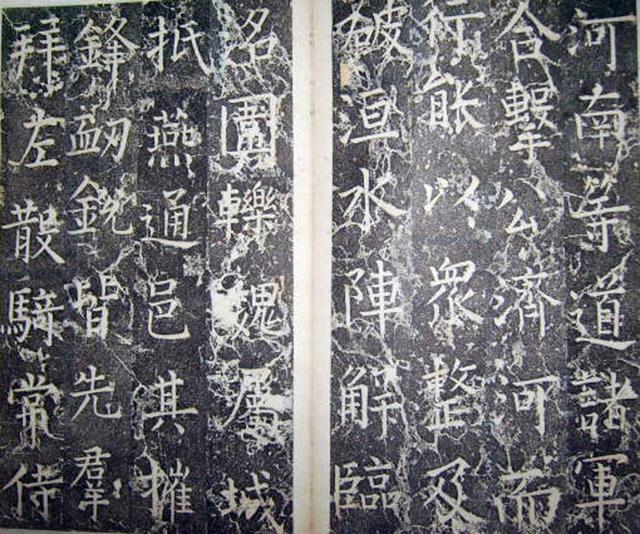 河南等道諸軍
合擊公濟河而
行能以衆整及
破洹水陣解臨
洺圍轢魏属城
抵燕通邑其摧
鋒衂銳皆先羣
拜左散騎常侍